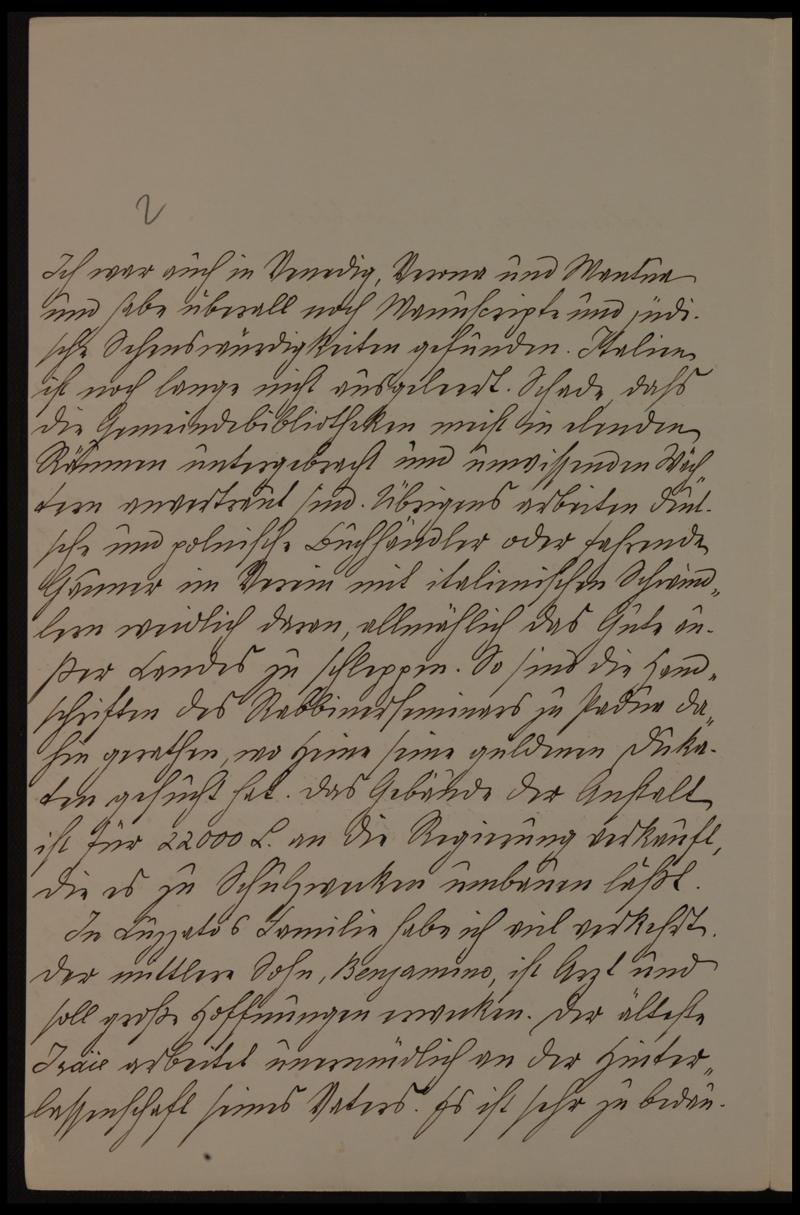 2
Ich war auch in Venedig, Verona und Mantua
und habe überall noch Manuscripte und jüdi-
sche Sehenswürdigkeiten gefunden. Italien
ist noch lange nicht ausgeleert. Schade, dass
die Gemeindebibliotheken meist in elenden
Räumen untergebracht und unwissenden Wäch-
tern anvertraut sind. Übrigens arbeiten deut-
sche und polnische Buchhändler oder fahrende
Gauner im Verein mit italienischen Schwind-
lern weidlich daran, allmählich das Gute au-
ßer Landes zu schleppen. So sind die Hand-
schriften des Rabbinerseminars zu Padua da-
hin gerathen, wo Heine seine guldenen Duka-
ten gesucht hat. Das Gebäude der Anstalt
ist für 22000 L. an die Regierung verkauft,
die es zu Schulzwecken umbauen läßt.
In Luzzatos Familie habe ich viel verkehrt.
Der mittlere Sohn, Benjamino, ist Arzt und
soll große Hoffnungen erwecken. Der älteste
Isaie arbeitet unermüdlich an der Hinter-
lassenschaft seines Vaters. Es ist sehr zu bedau-